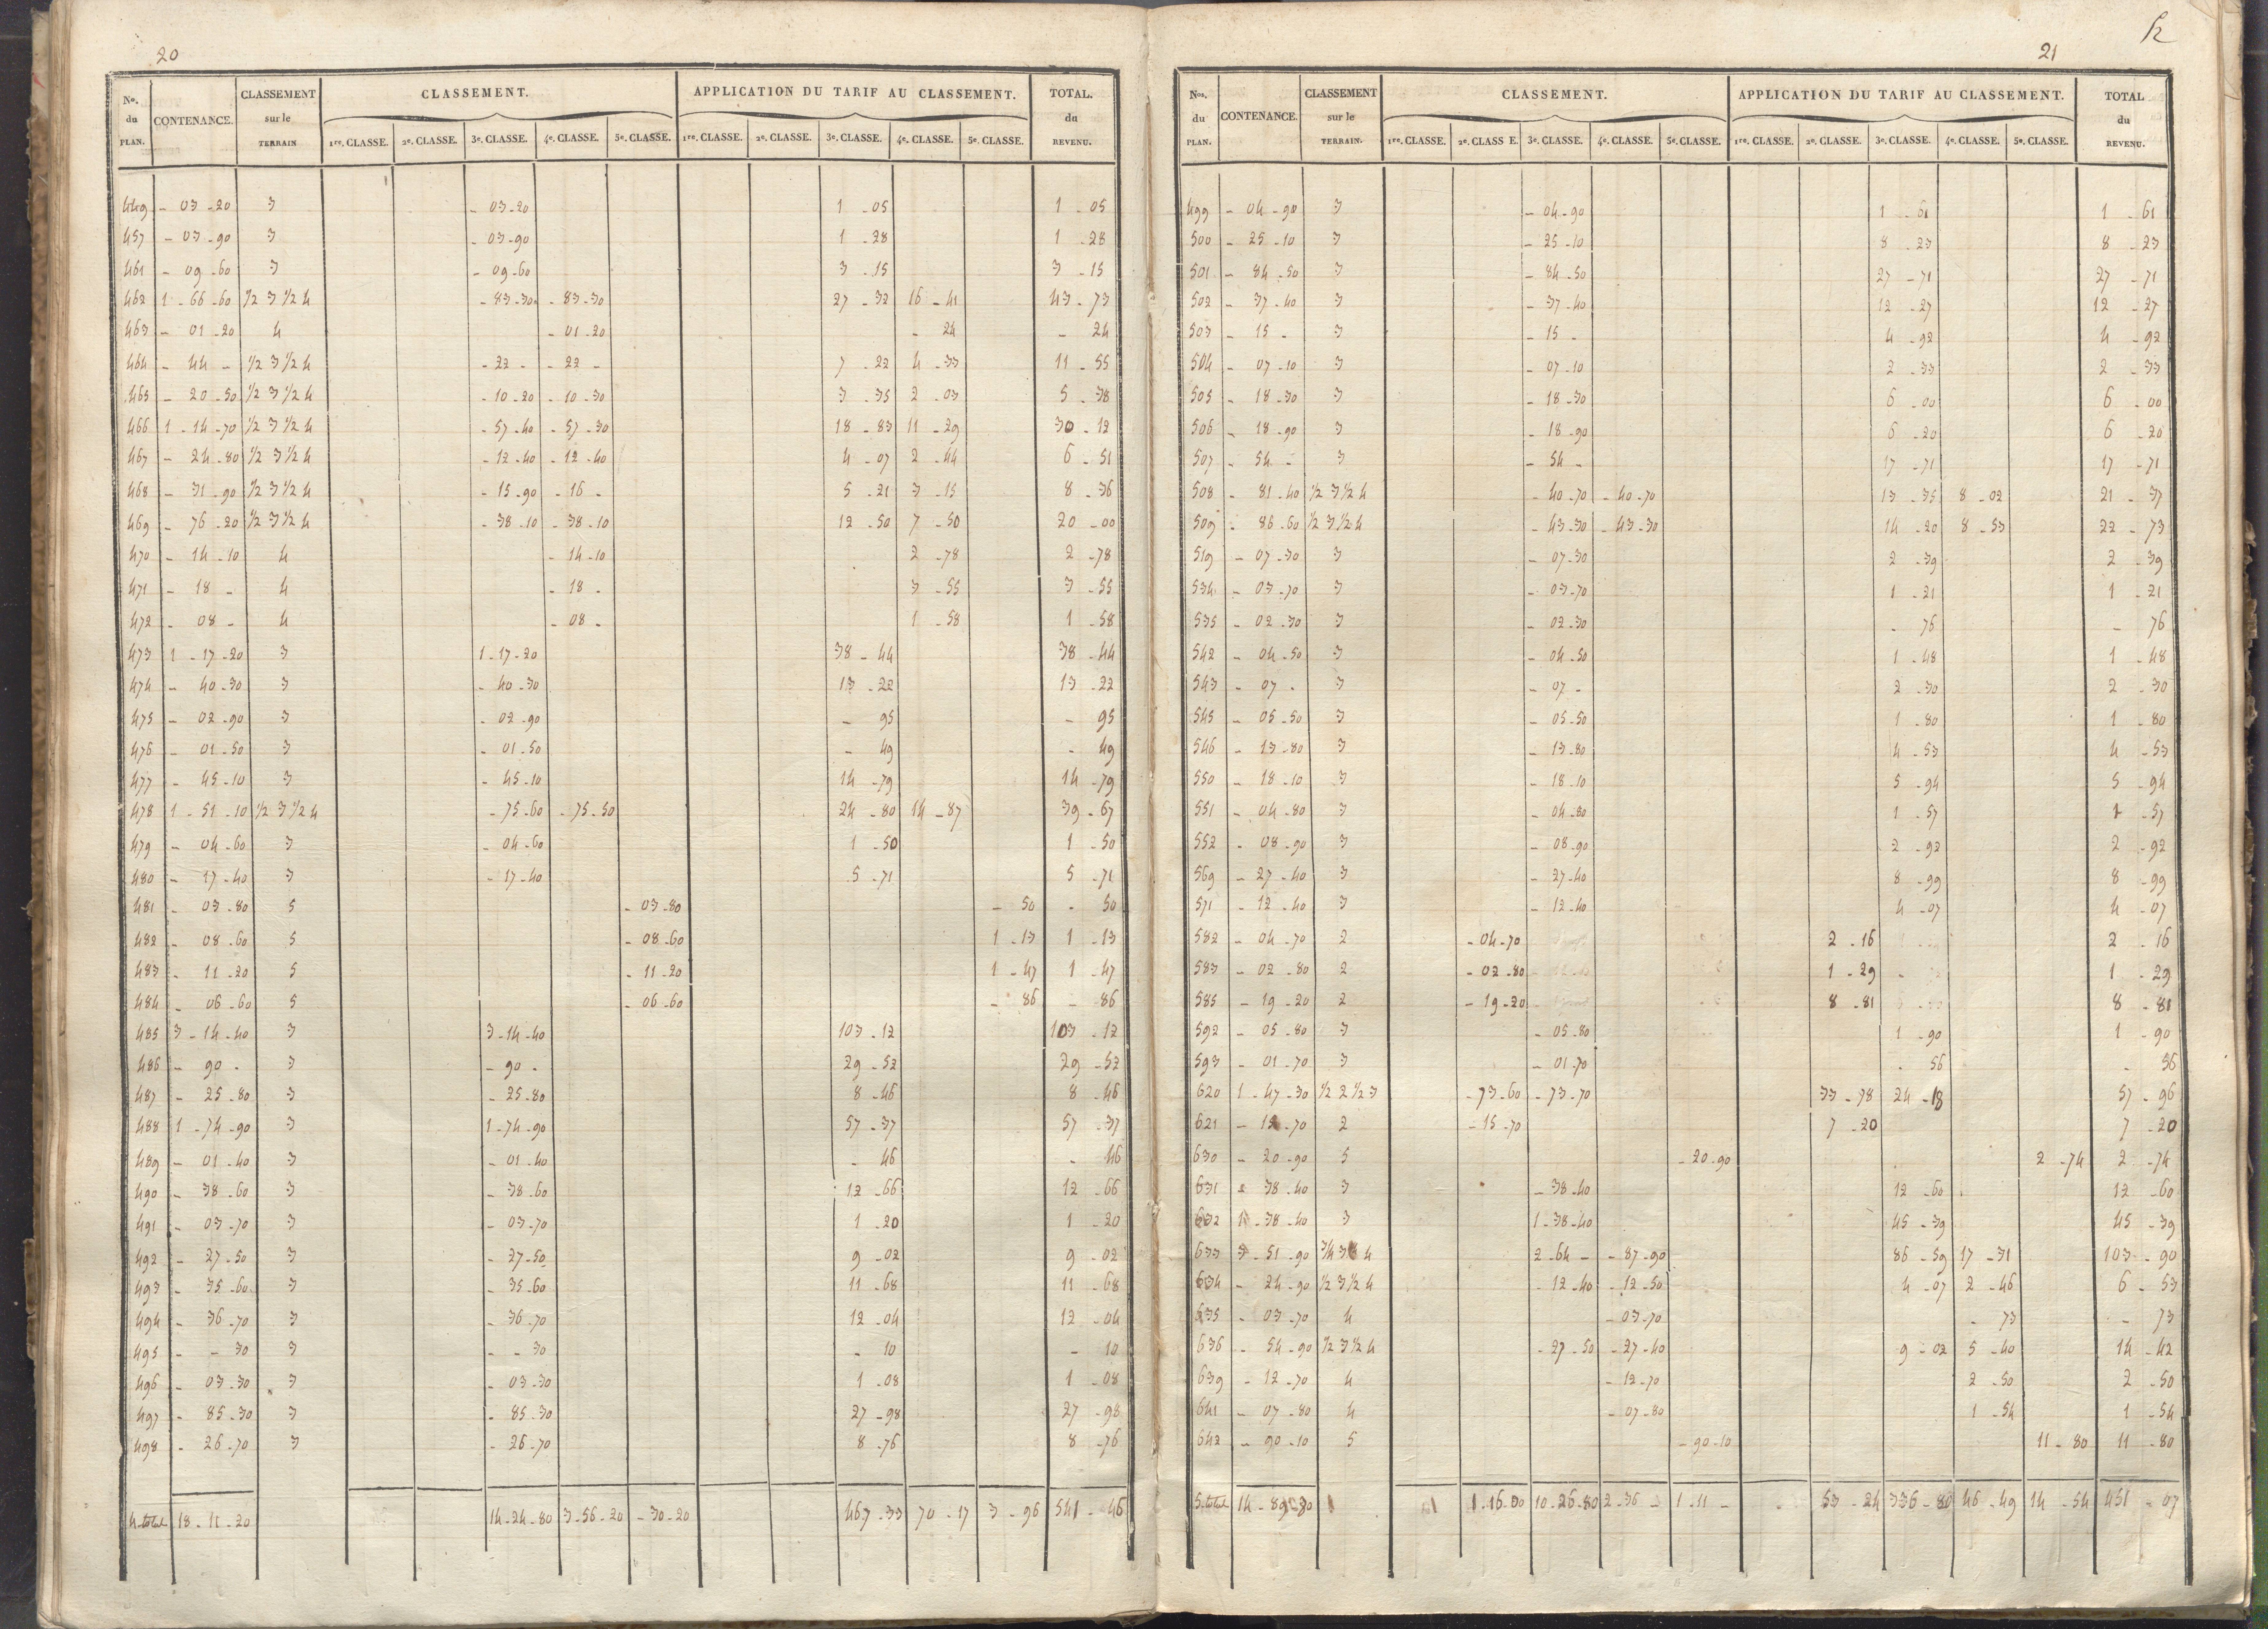 20
Nos. du PLAN. CONTENANCE. CLASSEMENT sur le TERRAIN CLASSEMENT. APPLICATION DU TARIF AU CLASSEMENT. TOTAL. du REVENU.
1re. CLASSE. 2e. CLASSE. 3e. CLASSE. 4e. CLASSE. 5e. CLASSE. 1re. CLASSE. 2e. CLASSE. 3e. CLASSE. 4e. CLASSE. 5e. CLASSE.
449 - 03 - 20 3 - 03 - 20 1 - 05 1 - 05
457 - 03 - 90 3 - 03 - 90 1 - 28 1 - 28
461 - 09 - 60 3 - 09 - 60 3 - 15 3 - 15
462 1 - 66 - 60 1/2 3 1/2 4 - 83 - 30 - 83 - 30 27 - 32 16 - 41 43 - 73
463 - 01 - 20 4 - 01 - 20 - 24 - 24
464 - 44 - 1/2 3 1/2 4 - 22 - - 22 - 7 - 22 4 - 33 11 - 55
465 - 20 - 50 1/2 3 1/2 4 - 10 - 20 - 10 - 30 3 - 35 2 - 03 5 - 38
466 1 - 14 - 70 1/2 3 1/2 4 - 57 - 40 - 57 - 30 18 - 83 11 - 29 30 - 12
467 - 24 - 80 1/2 3 1/2 4 - 12 - 40 - 12 - 40 4 - 07 2 - 44 6 - 51
468 - 31 - 90 1/2 3 1/2 4 - 15 - 90 - 16 - 5 - 21 3 - 15 8 - 36
469 - 76 - 20 1/2 3 1/2 4 - 38 - 10 - 38 - 10 12 - 50 7 - 50 20 - 00
470 - 14 - 10 4 - 14 - 10 2 - 78 2 - 78
471 - 18 - 4 - 18 - 3 - 55 3 - 55
472 - 08 - 4 - 08 - 1 - 58 1 - 58
473 1 - 17 - 20 3 1 - 17 - 20 38 - 44 38 - 44
474 - 40 - 30 3 - 40 - 30 13 - 22 13 - 22
475 - 02 - 90 3 - 02 - 90 - 95 - 95
476 - 01 - 50 3 - 01 - 50 - 49 - 49
477 - 45 - 10 3 - 45 - 10 14 - 79 14 - 79
478 1 - 51 - 10 1/2 3 1/2 4 - 75 - 60 - 75 - 50 24 - 80 14 - 87 39 - 67
479 - 04 - 60 3 - 04 - 60 1 - 50 1 - 50
480 - 17 - 40 3 - 17 - 40 5 - 71 5 - 71
481 - 03 - 80 5 - 03 - 80 - 50 - 50
482 - 08 - 60 5 - 08 - 60 1 - 13 1 - 13
483 - 11 - 20 5 - 11 - 20 1 - 47 1 - 47
484 - 06 - 60 5 - 06 - 60 - 86 - 86
485 3 - 14 - 40 3 3 - 14 - 40 103 - 12 103 - 12
486 - 90 - 3 - 90 - 29 - 52 29 - 52
487 - 25 - 80 3 - 25 - 80 8 - 46 8 - 46
488 1 - 74 - 90 3 1 - 74 - 90 57 - 37 57 - 37
489 - 01 - 40 3 - 01 - 40 - 46 - 46
490 - 38 - 60 3 - 38 - 60 12 - 66 12 - 66
491 - 03 - 70 3 - 03 - 70 1 - 20 1 - 20
492 - 27 - 50 3 - 27 - 50 9 - 02 9 - 02
493 - 35 - 60 3 - 35 - 60 11 - 68 11 - 68
494 - 36 - 70 3 - 36 - 70 12 - 04 12 - 04
495 - - 30 3 - - 30 - 10 - 10
496 - 03 - 30 3 - 03 - 30 1 - 08 1 - 08
497 - 85 - 30 3 - 85 - 30 27 - 98 27 - 98
498 - 26 - 70 3 - 26 - 70 8 - 76 8 - 76
4. total 18 - 11 - 20 14 - 24 - 80 3 - 56 - 20 - 30 - 20 467 - 33 70 - 17 3 - 96 541 - 46
21
Nos. du PLAN. CONTENANCE. CLASSEMENT sur le TERRAIN. CLASSEMENT. APPLICATION DU TARIF AU CLASSEMENT. TOTAL du REVENU.
1re. CLASSE. 2e. CLASS E. 3e. CLASSE. 4e. CLASSE. 5e. CLASSE. 1re. CLASSE. 2e. CLASSE. 3e. CLASSE. 4e. CLASSE. 5e. CLASSE.
499 - 04 - 90 3 - 04 - 90 1 - 61 1 - 61
500 - 25 - 10 3 - 25 - 10 8 - 23 8 - 23
501 - 84 - 50 3 - 84 - 50 27 - 71 27 - 71
502 - 37 - 40 3 - 37 - 40 12 - 27 12 - 27
503 - 15 - 3 - 15 - 4 - 92 4 - 92
504 - 07 - 10 3 - 07 - 10 2 - 33 2 - 33
505 - 18 - 30 3 - 18 - 30 6 - 00 6 - 00
506 - 18 - 90 3 - 18 - 90 6 - 20 6 - 20
507 - 54 - 3 - 54 - 17 - 71 17 - 71
508 - 81 - 40 1/2 3 1/2 4 - 40 - 70 - 40 - 70 13 - 35 8 - 02 21 - 37
509 - 86 - 60 1/2 3 1/2 4 - 43 - 30 - 43 - 30 14 - 20 8 - 53 22 - 73
519 - 07 - 30 3 - 07 - 30 2 - 39 2 - 39
534 - 03 - 70 3 - 03 - 70 1 - 21 1 - 21
535 - 02 - 30 3 - 02 - 30 - 76 - 76
542 - 04 - 50 3 - 04 - 50 1 - 48 1 - 48
543 - 07 - 3 - 07 - 2 - 30 2 - 30
545 - 05 - 50 3 - 05 - 50 1 - 80 1 - 80
546 - 13 - 80 3 - 13 - 80 4 - 53 4 - 53
550 - 18 - 10 3 - 18 - 10 5 - 94 5 - 94
551 - 04 - 80 3 - 04 - 80 1 - 57 1 - 57
552 - 08 - 90 3 - 08 - 90 2 - 92 2 - 92
569 - 27 - 40 3 - 27 - 40 8 - 99 8 - 99
571 - 12 - 40 3 - 12 - 40 4 - 07 4 - 07
582 - 04 - 70 2 - 04 - 70 2 - 16 2 - 16
583 - 02 - 80 2 - 02 - 80 1 - 29 1 - 29
585 - 19 - 20 2 - 19 - 20 8 - 81 8 - 81
592 - 05 - 80 3 - 05 - 80 1 - 90 1 - 90
593 - 01 - 70 3 - 01 - 70 - 56 - 56
620 1 - 47 - 30 1/2 2 1/2 3 - 73 - 60 - 73 - 70 33 - 78 24 - 18 57 - 96
621 - 15 - 70 2 - 15 - 70 7 - 20 7 - 20
630 - 20 - 90 5 - 20 - 90 2 - 74 2 - 74
631 - 38 - 40 3 - 38 - 40 12 - 60 12 - 60
632 1 - 38 - 40 3 1 - 38 - 40 45 - 39 45 - 39
633 3 - 51 - 90 3/4 3 4 2 - 64 - - 87 - 90 86 - 59 17 - 31 103 - 90
634 - 24 - 90 1/2 3 1/2 4 - 12 - 40 - 12 - 50 4 - 07 2 - 46 6 - 53
635 - 03 - 70 4 - 03 - 70 - 73 - 73
636 - 54 - 90 1/2 3 1/2 4 - 27 - 50 - 27 - 40 9 - 02 5 - 40 14 - 42
639 - 12 - 70 4 - 12 - 70 2 - 50 2 - 50
641 - 07 - 80 4 - 07 - 80 1 - 54 1 - 54
642 - 90 - 10 5 - 90 - 10 11 - 80 11 - 80
5. total 14 - 89 - 30 1 - 16 - 00 10 - 26 - 80 2 - 36 - 1 - 11 - 53 - 24 336 - 80 46 - 49 14 - 54 451 - 07